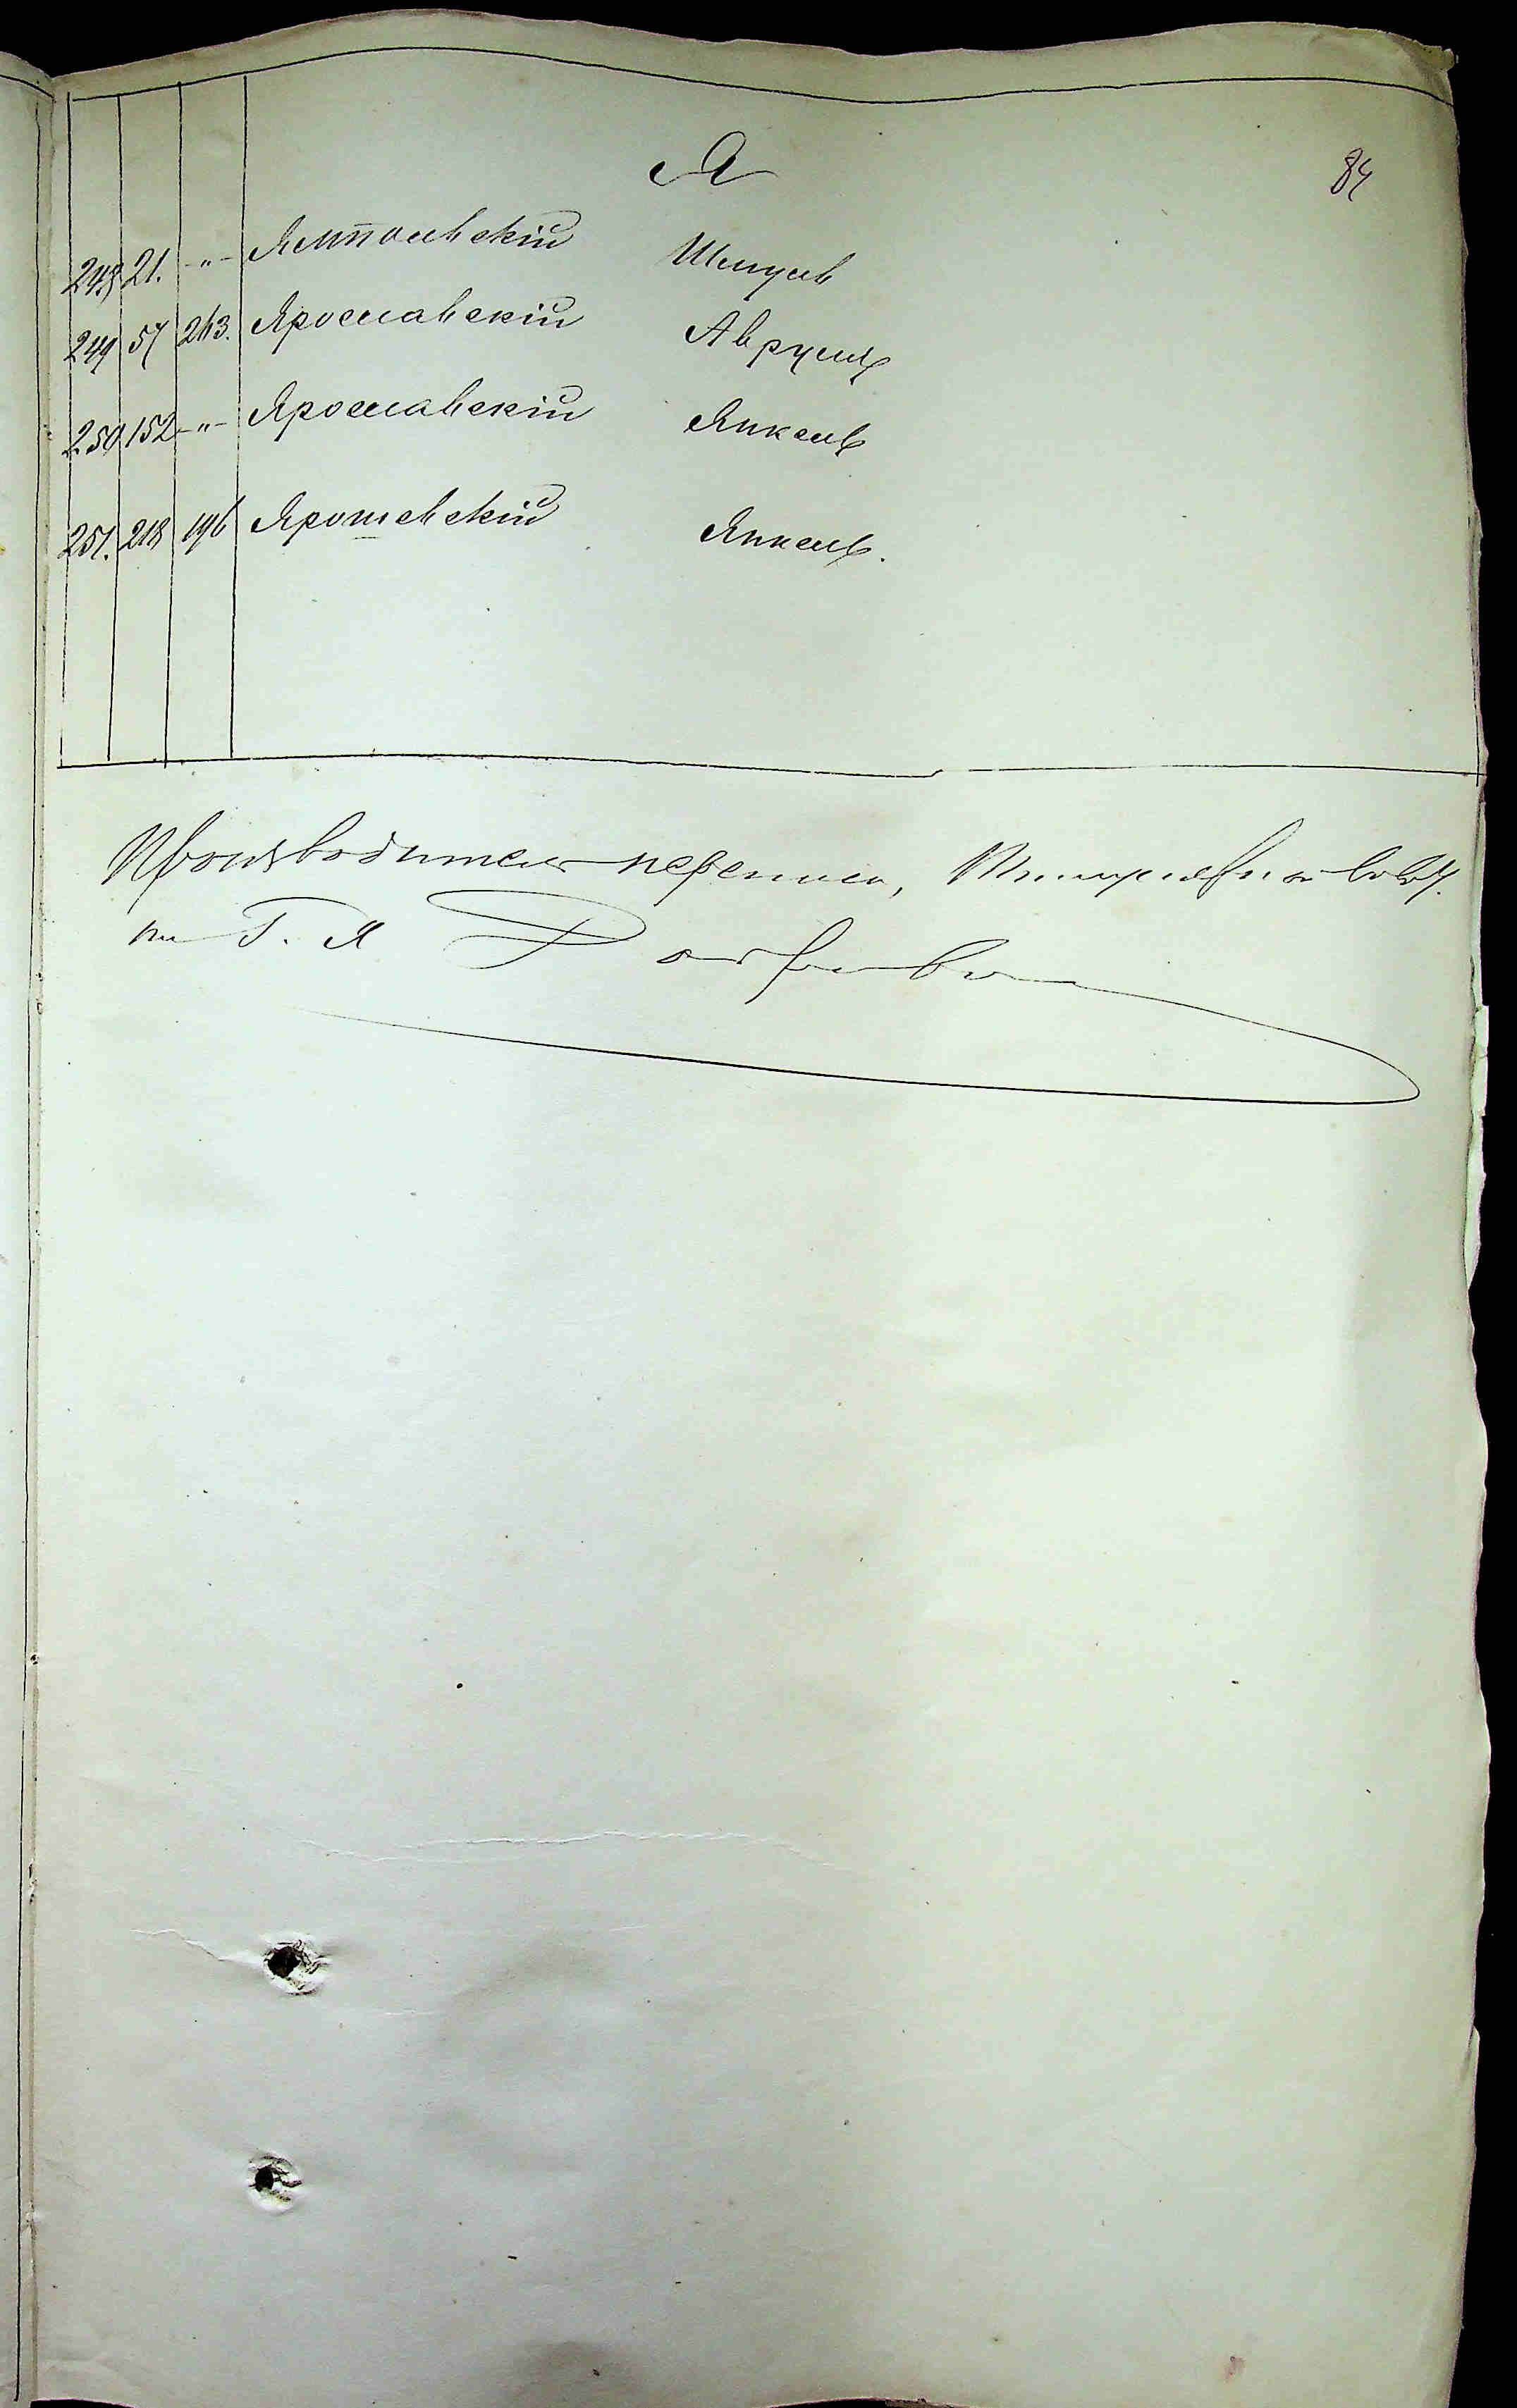 Я
84
248 21. -"- Ямпольскій Шмуль
249 57 263. Ярославскій Аврумъ
250 152 -"- Ярославскій Янкель
251. 218 196 Ярошевскій Янкель.
Производитель переписи, Титулярный Совѣт.